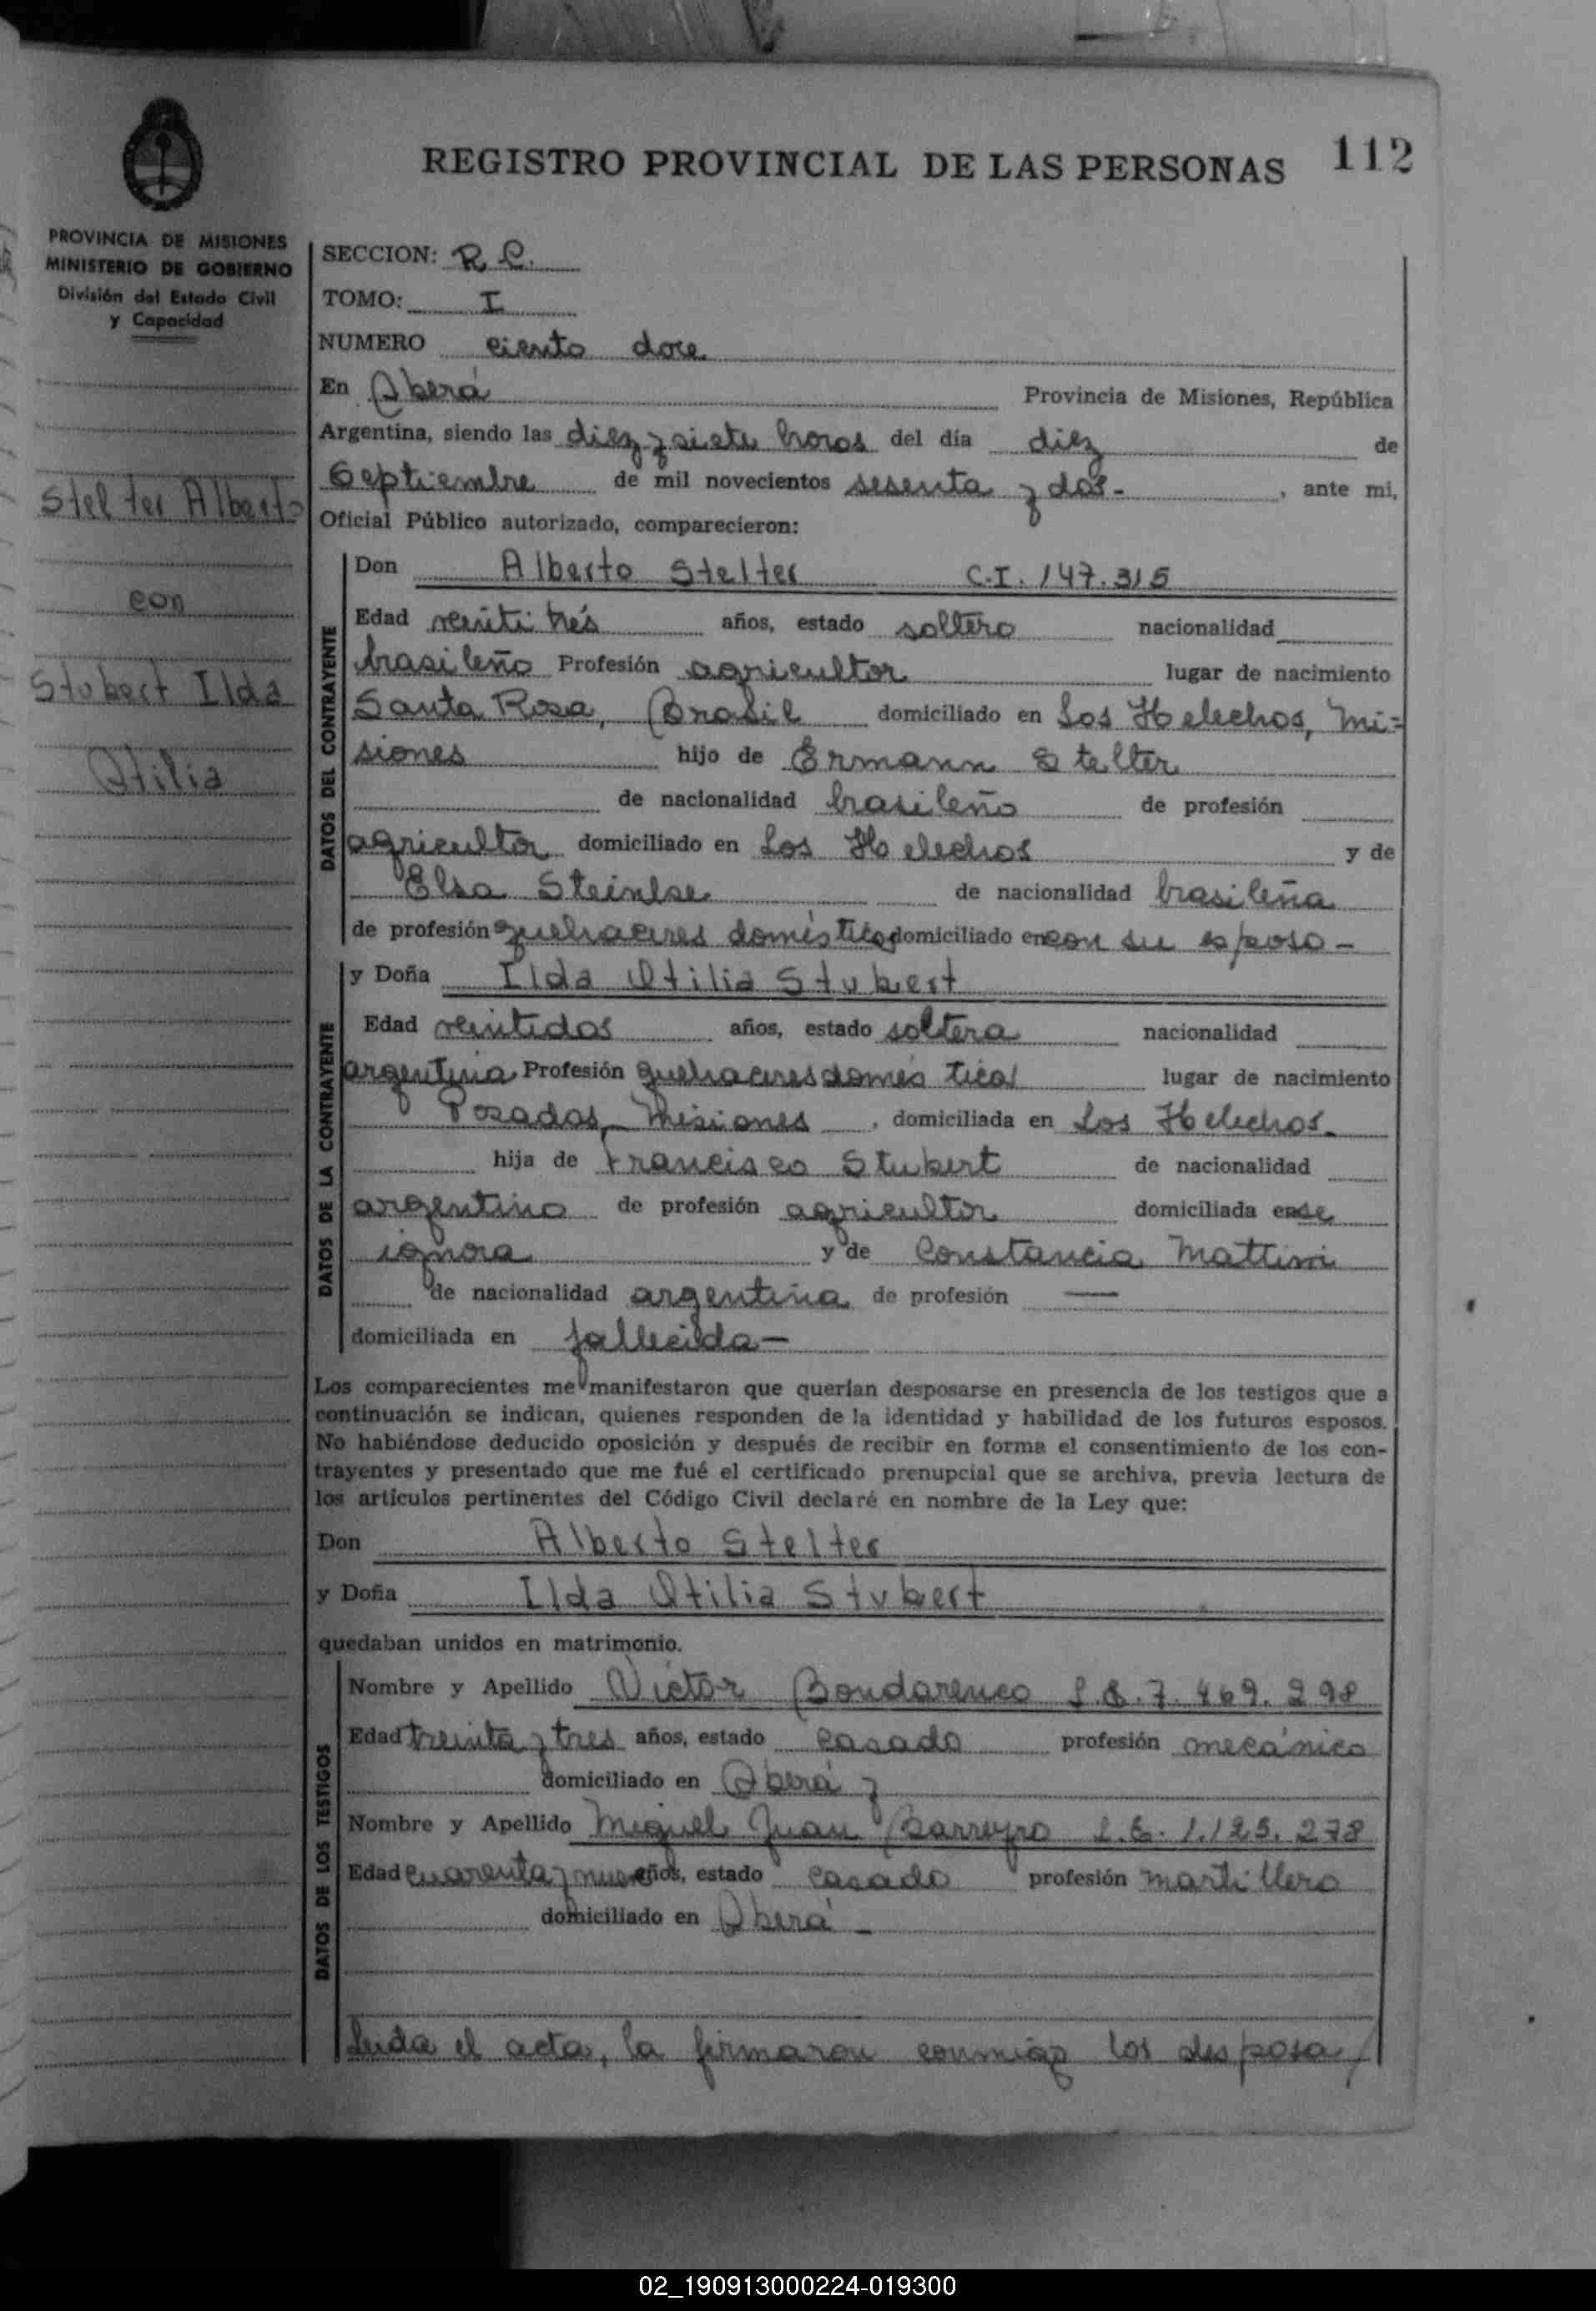 REGISTRO PROVINCIAL DE LAS PERSONAS 112
PROVINCIA DE MISIONES
MINISTERIO DE GOBIERNO
División del Estado Civil
y Capacidad
Stelter Alberto
con
Stubert Ilda
Otilia
SECCION: R C.
TOMO: I
NUMERO ciento doce
En Oberá Provincia de Misiones, República
Argentina, siendo las diez y siete horas del día diez de
Septiembre de mil novecientos sesenta y dos- , ante mi,
Oficial Público autorizado, comparecieron:
DATOS DEL CONTRAYENTE
Don Alberto Stelter C.I. 147.315
Edad veinti trés años, estado soltero nacionalidad
brasileño Profesión agricultor lugar de nacimiento
Santa Rosa, Brasil domiciliado en Los Helechos, Mi=
siones hijo de Ermann Stelter
de nacionalidad brasileño de profesión
agricultor domiciliado en Los Helechos y de
Elsa de nacionalidad brasileña
de profesión quehaceres domésticos domiciliado en con su esposo-
DATOS DE LA CONTRAYENTE
y Doña Ilda Otilia Stubert
Edad veintidos años, estado soltera nacionalidad
argentina Profesión quehaceres domésticos lugar de nacimiento
Posadas, Misiones , domiciliada en Los Helechos.
hija de Francisco Stubert de nacionalidad
argentino de profesión agricultor domiciliada en se
ignora y de Constancia
de nacionalidad argentina de profesión —
domiciliada en fallecida-
Los comparecientes me manifestaron que querían desposarse en presencia de los testigos que a
continuación se indican, quienes responden de la identidad y habilidad de los futuros esposos.
No habiéndose deducido oposición y después de recibir en forma el consentimiento de los con-
trayentes y presentado que me fué el certificado prenupcial que se archiva, previa lectura de
los artículos pertinentes del Código Civil declaré en nombre de la Ley que:
Don Alberto Stelter
y Doña Ilda Otilia Stubert
quedaban unidos en matrimonio.
DATOS DE LOS TESTIGOS
Nombre y Apellido Victor Bondarenco L.E. 7.469.298
Edad treinta y tres años, estado casado profesión mecánico
domiciliado en Oberá y
Nombre y Apellido Miguel Juan Barreyro L.E. 1.125.278
Edad cuarenta y nueve años, estado casado profesión martillero
domiciliado en Oberá -
Leida el acta, la firmaron conmigo los desposa/
02_190913000224-019300